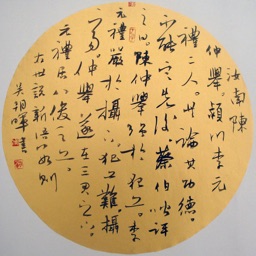 汝南陳
仲舉潁川李元
禮二人共論其功德
不能定先後蔡伯喈評
之曰陳仲舉強於犯上李
元禮嚴於攝下犯上難攝
下易仲舉遂在三君之下
元禮居八俊之上
右世說新語 則
吳 暉書